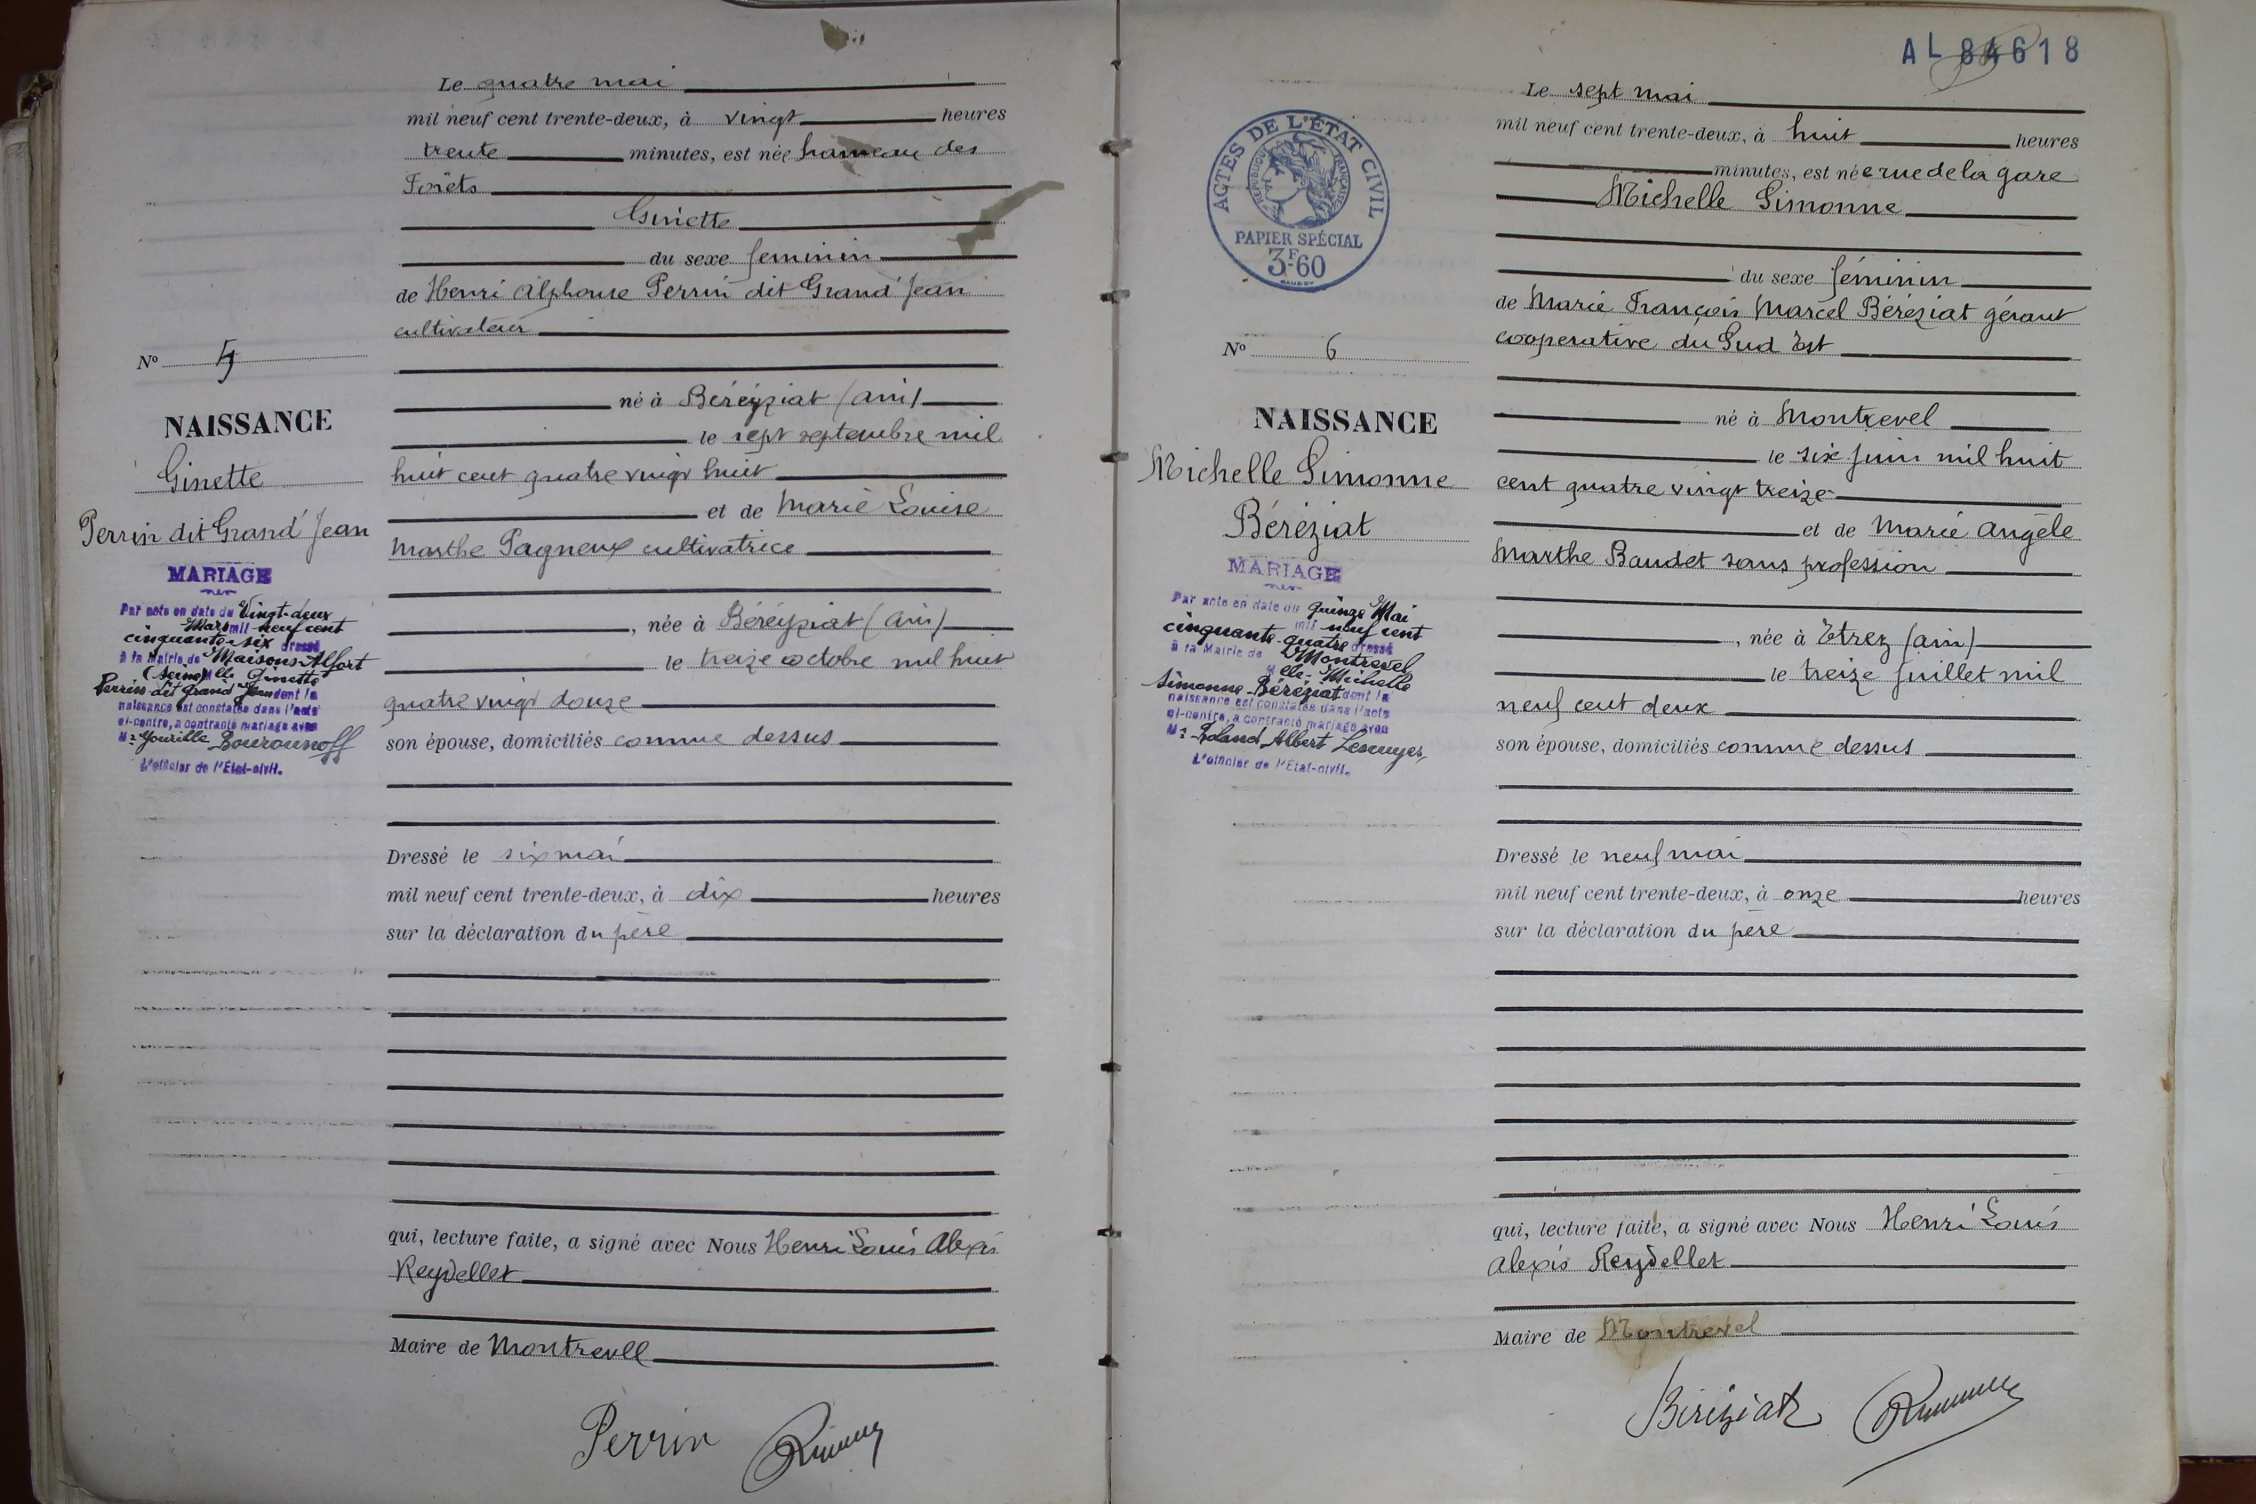 Le quatre mai
mil neuf cent trente-deux, à vingt heures
trente minutes, est née hameau des
Forêts
Ginette
du sexe feminin
de Henri Alphonse Perrin dit Grand'Jean
cultivateur
né à Béréyziat (ain)
le sept septembre mil
huit cent quatre vingt huit
et de Marie Louise
Marthe Pagneux cultivatrice
, née à Béréyziat (ain)
le treize octobre mil huit
quatre vingt douze
son épouse, domiciliés comme dessus
Dressé le six mai
mil neuf cent trente-deux, à dix heures
sur la déclaration du père
qui, lecture faite, a signé avec Nous Henri Louis Alexis
Reydellet
Maire de Montrevel
Perrin
Nº 5
NAISSANCE
Ginette
Perrin dit Grand'Jean
MARIAGE
Par acte en date du Vingt-deux
Mars mil neuf cent
cinquante-six dressé
à la Mairie de Maisons-Alfort
(Seine) Mlle Ginette
Perrin dit Grand'Jean dont la
naissance est constatée dans l'acte
ci-contre, a contracté mariage avec
Mr Yourille Bourounoff
L'officier de l'État-civil.
AL 84618
ACTES DE L'ÉTAT CIVIL
RÉPUBLIQUE FRANÇAISE
PAPIER SPÉCIAL
3F.60
Nº 6
NAISSANCE
Michelle Simonne
Béréziat
MARIAGE
Par acte en date du quinze Mai
mil neuf cent
cinquante-quatre dressé
à la Mairie de Montrevel
elle Michelle
Simonne Béréziat dont la
naissance est constatée dans l'acte
ci-contre, a contracté mariage avec
Mr Roland Albert Lescuyer
L'officier de l'État-civil.
Le sept mai
mil neuf cent trente-deux, à huit heures
minutes, est née rue de la gare
Michelle Simonne
du sexe féminin
de Marie François Marcel Béréziat gérant
cooperative du Sud Est
né à Montrevel
le six juin mil huit
cent quatre vingt treize
et de Marie Angèle
Marthe Baudet sans profession
, née à Etrez (ain)
le treize juillet mil
neuf cent deux
son épouse, domiciliés comme dessus
Dressé le neuf mai
mil neuf cent trente-deux, à onze heures
sur la déclaration du père
qui, lecture faite, a signé avec Nous Henri Louis
Alexis Reydellet
Maire de Montrevel
Béréziat